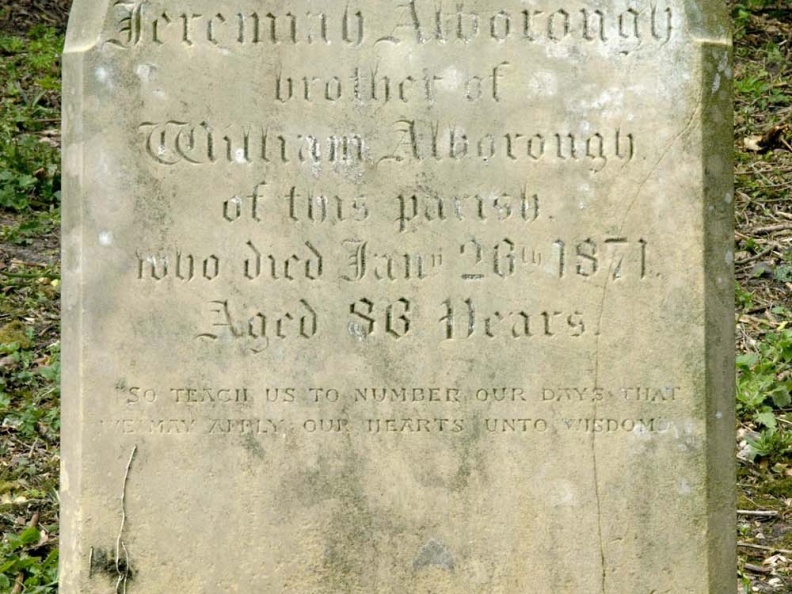 Jeremiah Alborough
brother of
William Alborough
of this parish.
who died Jany 26th 1871.
Aged 86 Years.
SO TEACH US TO NUMBER OUR DAYS THAT
WE MAY APPLY OUR HEARTS UNTO WISDOM.